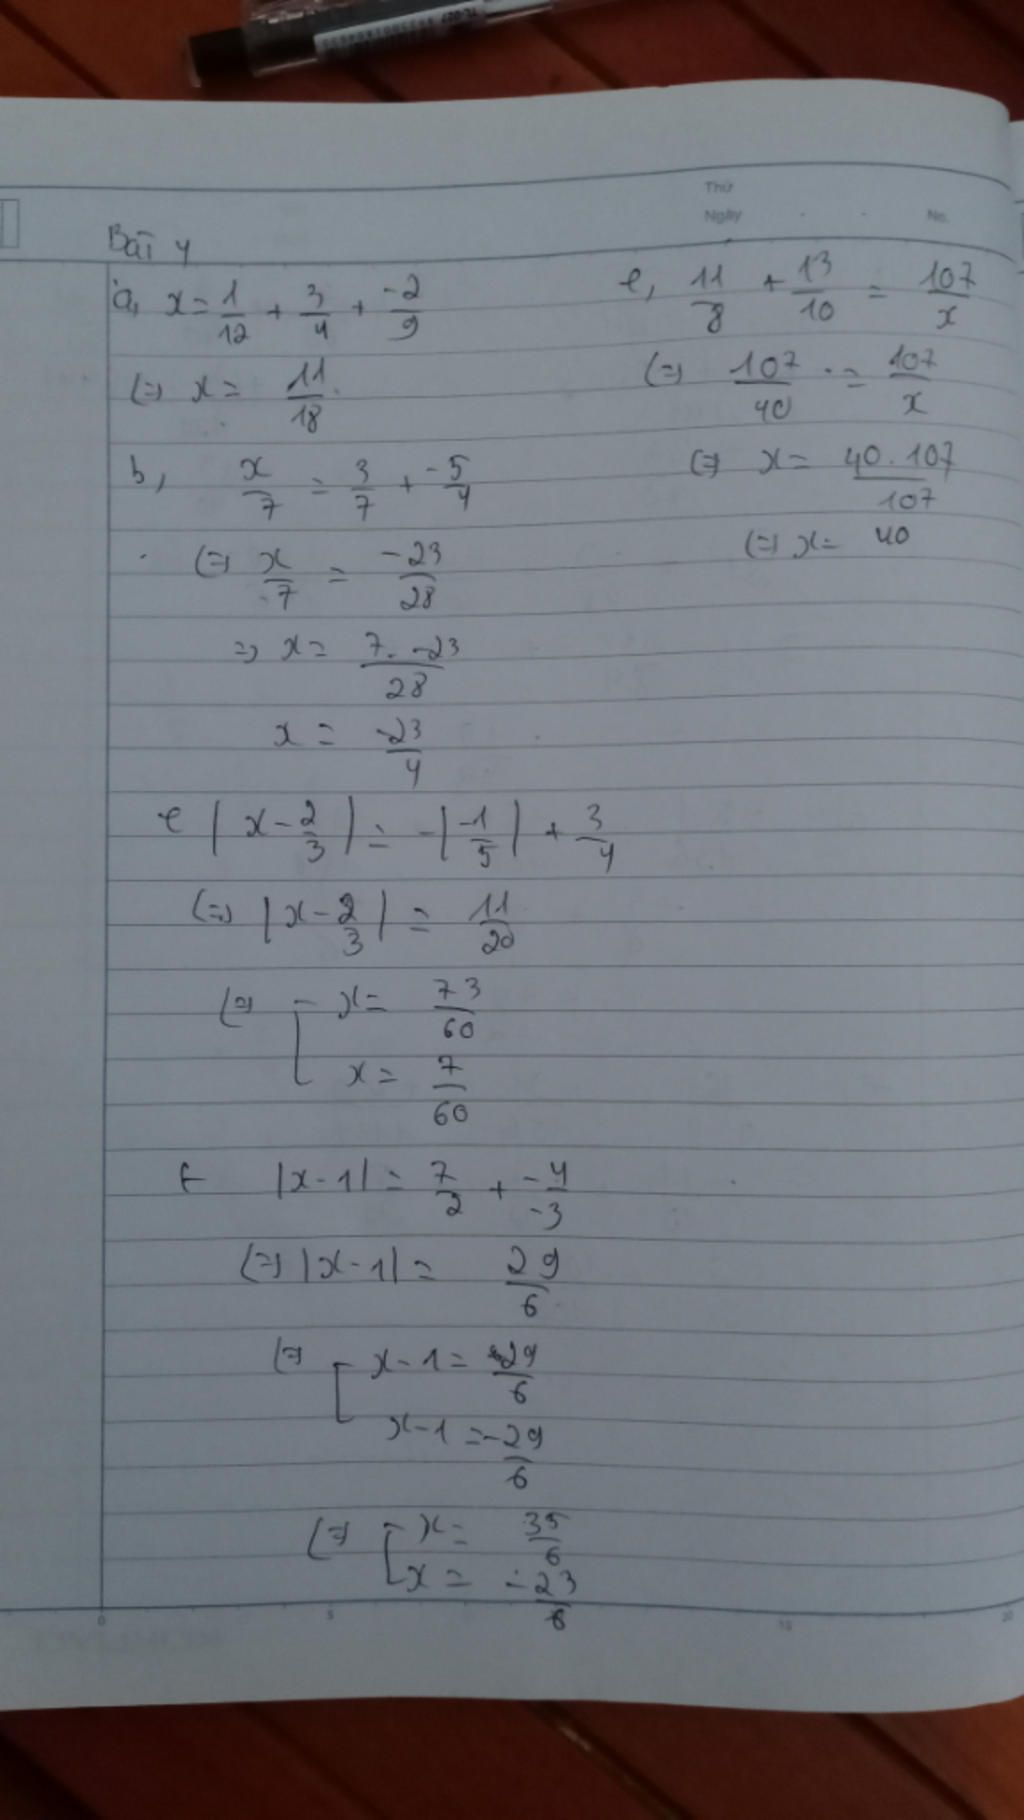 Thứ
Ngày . . No.
Bài 4
a, x = 1/12 + 3/4 + -2/9
(=) x = 11/18
b, x/7 = 3/7 + -5/4
(=) x/7 = -23/28
=) x = 7. -23/28
x = -23/4
e |x - 2/3| = -|-1/5| + 3/4
(=) |x - 2/3| = 11/20
(=) [ x = 73/60
x = 7/60
f |x - 1| = 7/2 + -4/-3
(=) |x - 1| = 29/6
(=) [ x - 1 = 29/6
x - 1 = -29/6
(=) [ x = 35/6
x = -23/6
e, 11/8 + 13/10 = 107/x
(=) 107/40 = 107/x
(=) x = 40.107/107
(=) x = 40
0 5 15 20